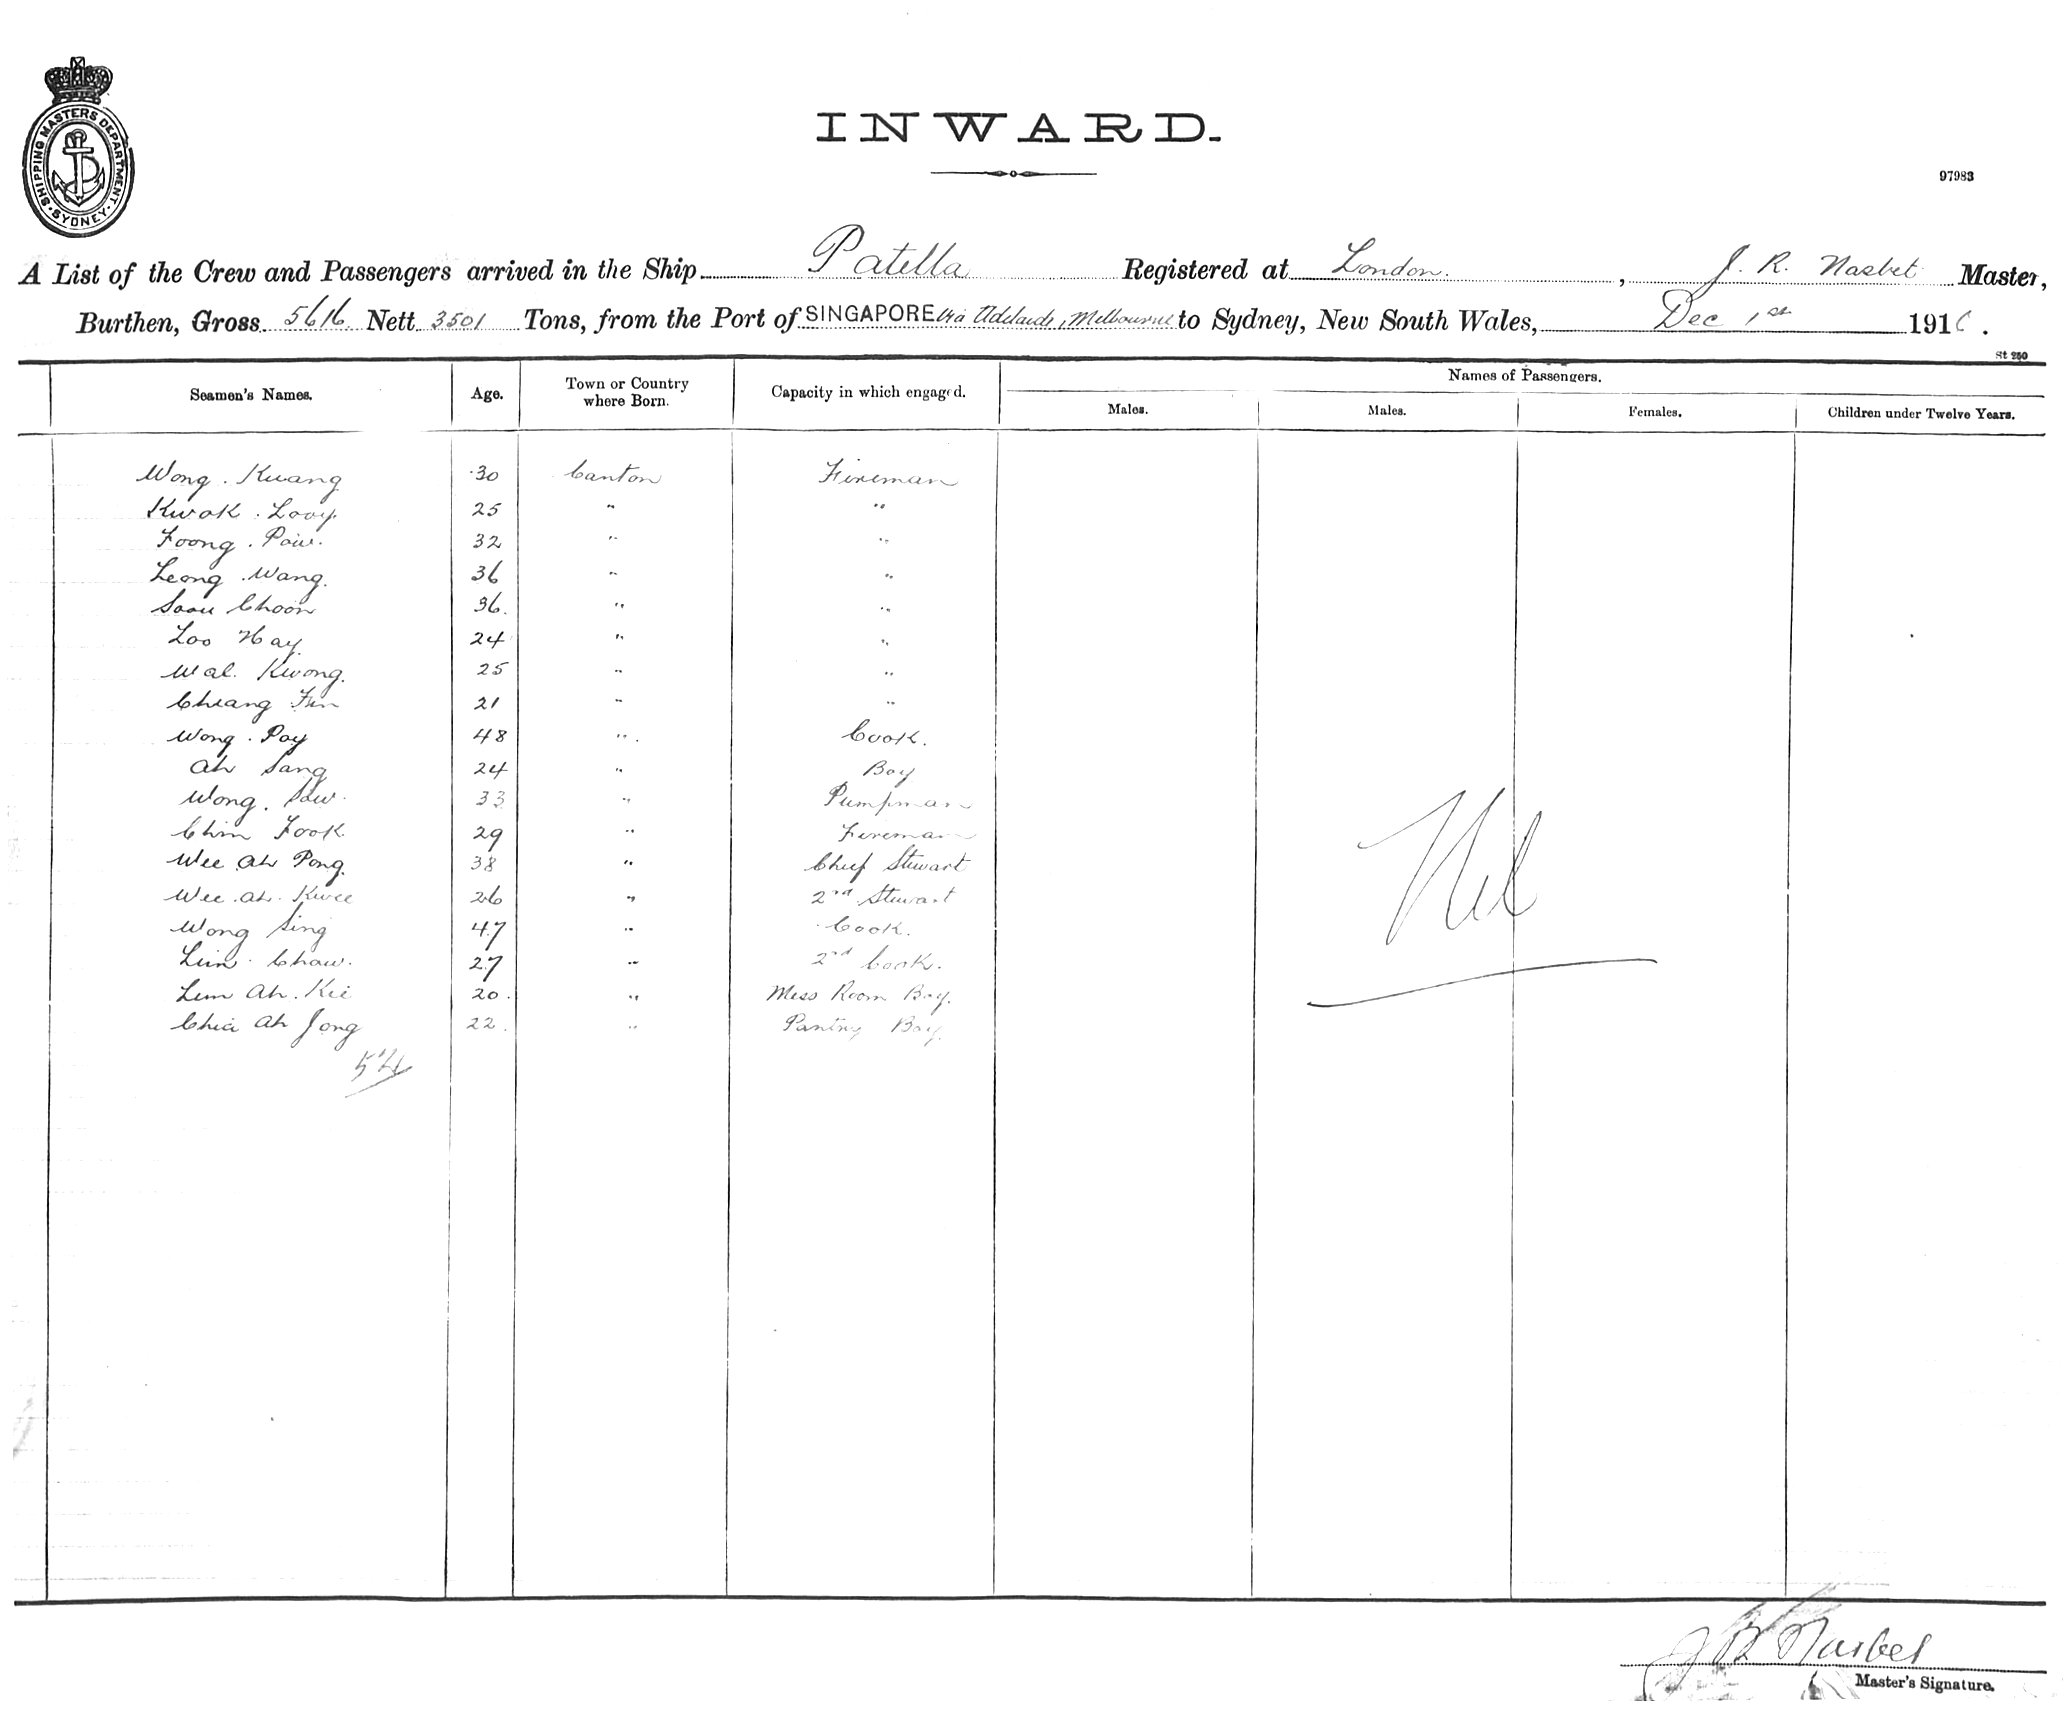 SHIPPING MASTERS DEPARTMENT
SYDNEY
INWARD.
97983
A List of the Crew and Passengers arrived in the Ship Patella Registered at London. , J. R. Nasbet Master,
Burthen, Gross 5616 Nett 3501 Tons, from the Port of SINGAPORE via Adelaide, Melbourne to Sydney, New South Wales, Dec 1st 1916.
St 250
Seamen's Names. Age. Town or Country where Born. Capacity in which engaged. Names of Passengers.
Males. Males. Females. Children under Twelve Years.
Wong. Kwang 30 Canton Fireman
Kwok. Looy. 25 " "
Foong. Paw. 32 " "
Leong. Wang. 36 " "
Choon 36. " "
Loo Hay. 24 " "
Wal. Kwong. 25 " "
Chiang Fun 21 " "
Wong. Poy 48 " Cook.
Ah Sang 24 " Boy
Wong. Saw. 33 " Pumpman
Chim Fook 29 " Fireman
Wee Ah Pong. 38 " Chief Stewart
Wee. Ah. Kwee 26 " 2nd Stewart
Wong Sing 47 " Cook.
Lim. Chaw. 27 " 2nd Cook.
Lim Ah. Kie 20. " Mess Room Boy.
Chia Ah Jong 22. " Pantry Boy.
54
Nil
J R Nasbet
Master's Signature.